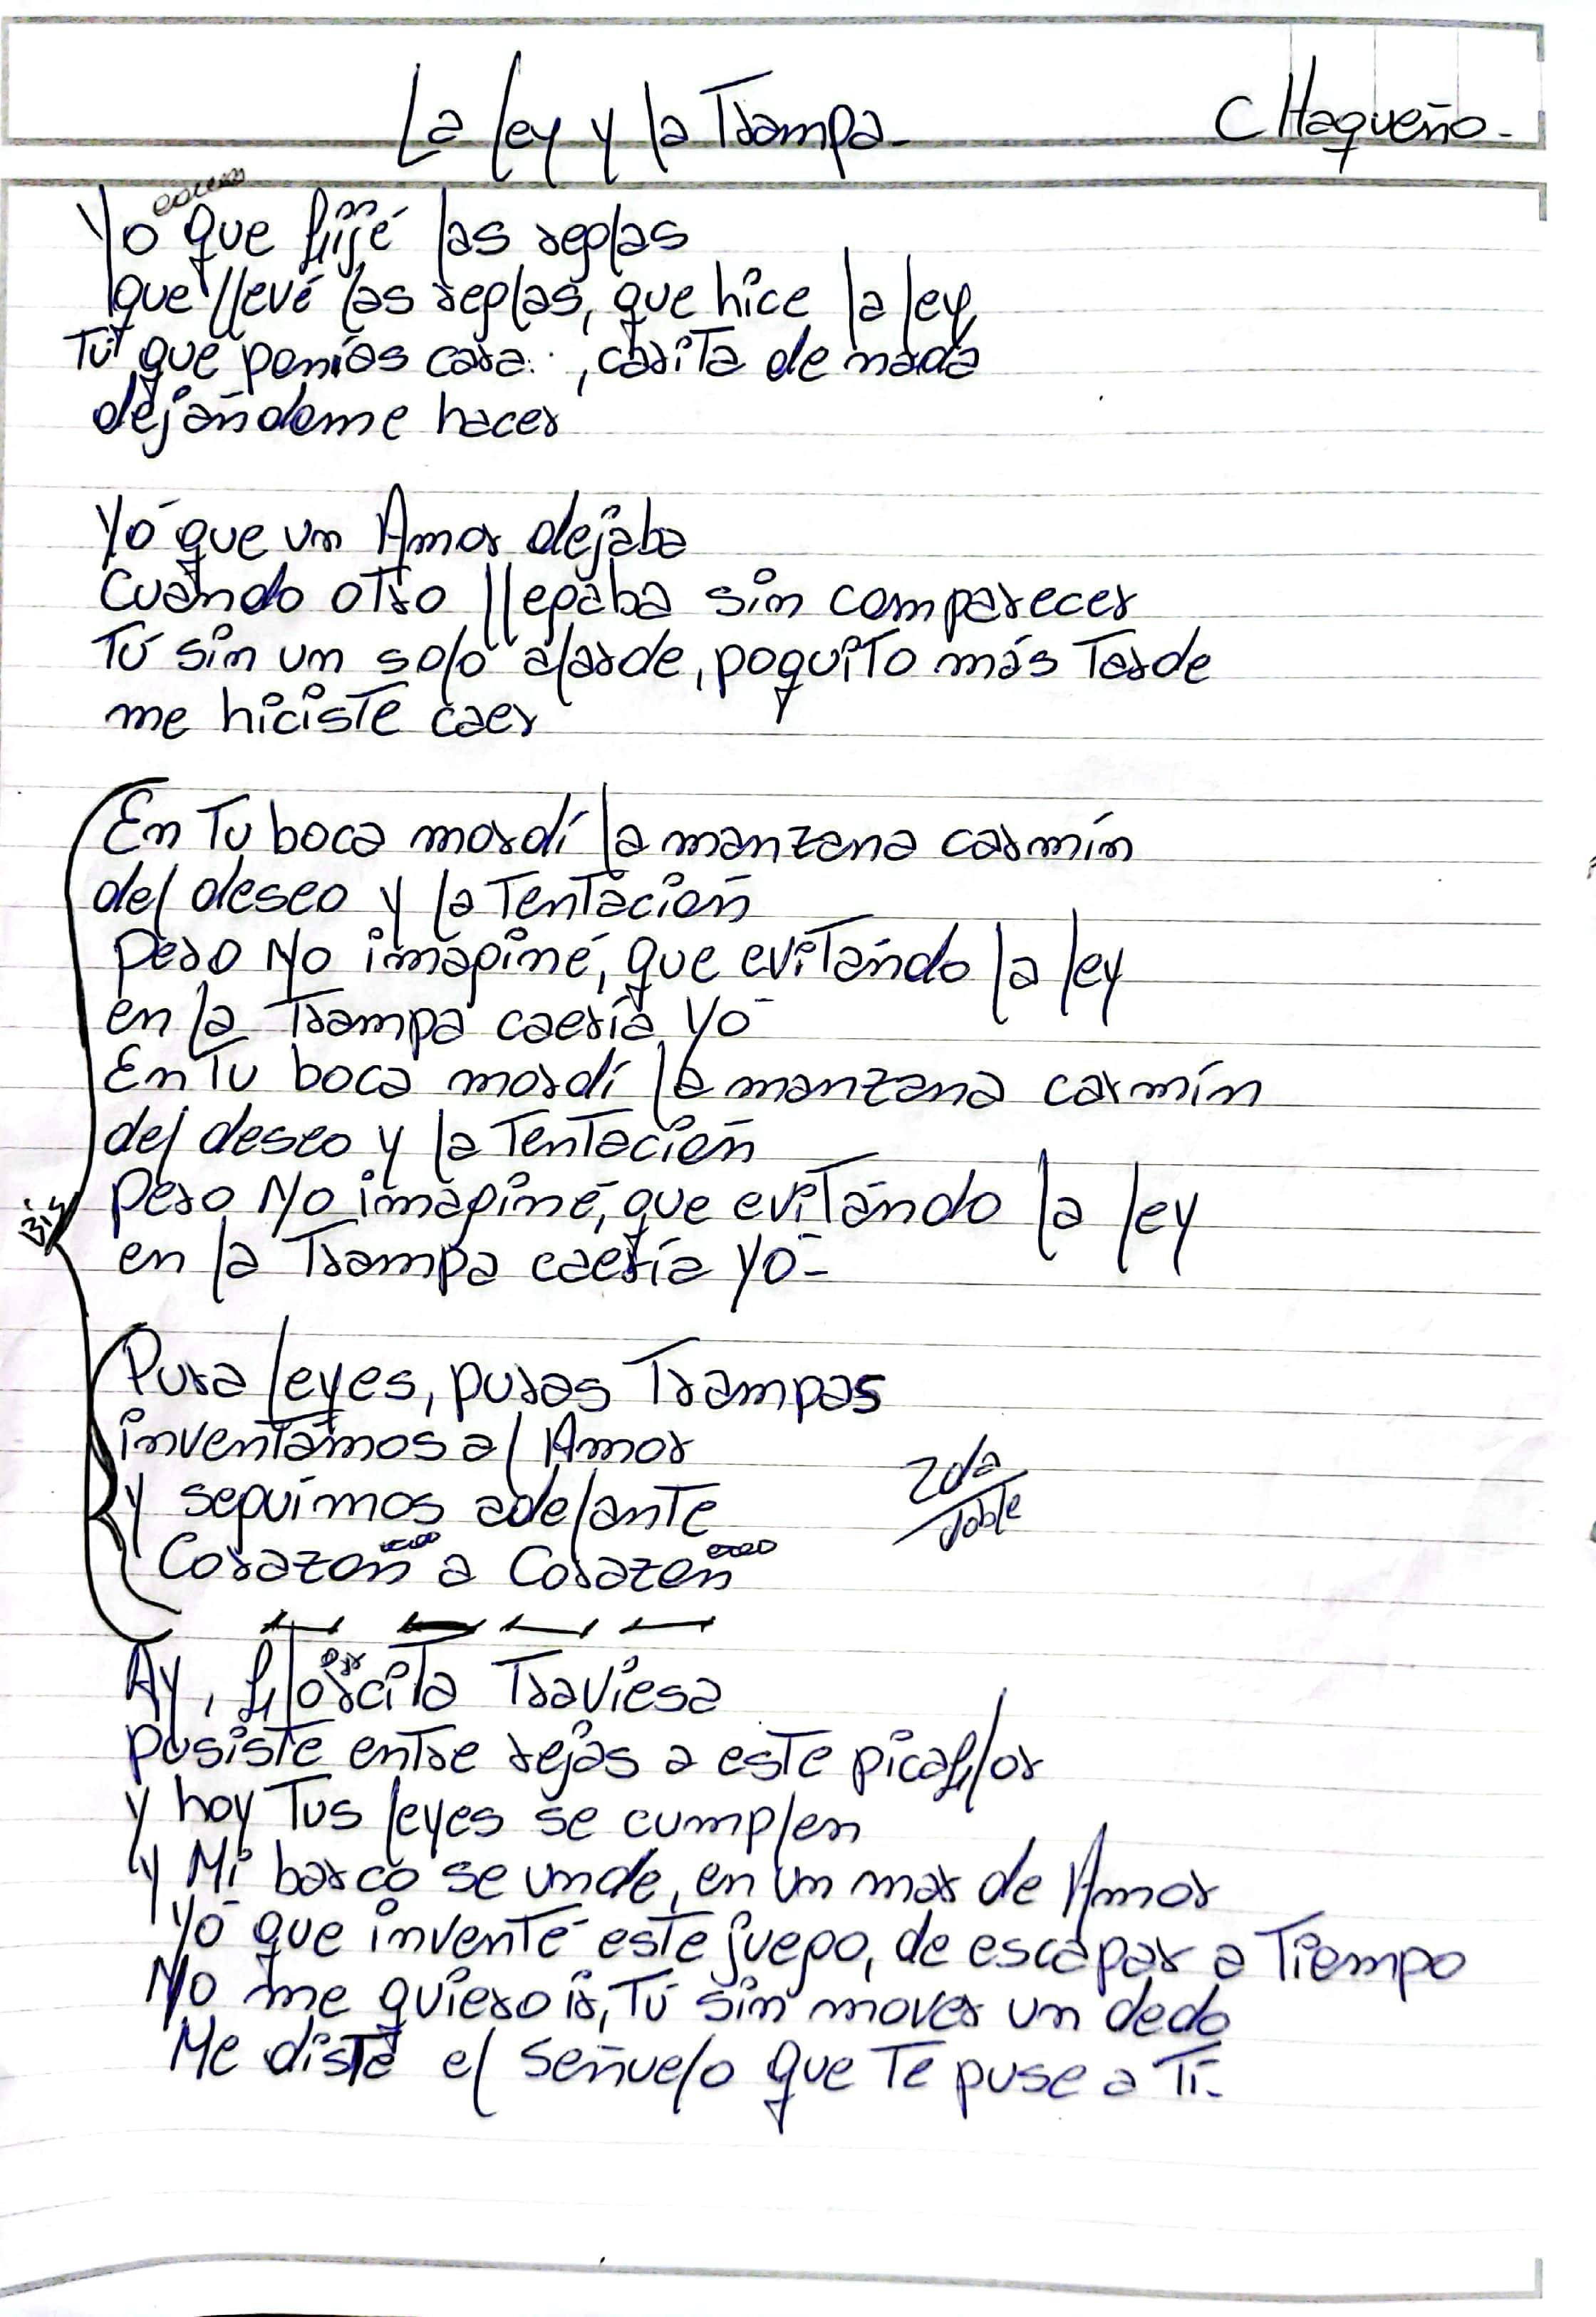 La ley y la Trampa - CHaqueño -
Yo que fijé las reglas
que llevé las reglas, que hice la ley
Tú que ponías cara.., carita de nada
dejándome hacer
Yó que un Amor dejaba
Cuando otro llegaba sin comparecer
Tú sin un solo alarde, poquito más Tarde
me hiciste caer
En Tu boca mordí la manzana carmín
del deseo y la Tentación
Pero No imaginé, que evitándo la ley
en la Trampa caería Yó
En Tu boca mordí la manzana carmín
del deseo y la Tentación
Bis
Pero No imaginé, que evitándo la ley
en la Trampa caería Yó -
Pura leyes, puras Trampas
inventámos al Amor
y seguímos adelante
2da
doble
Corazón a Corazón
Ay, florcita Traviesa
pusiste entre rejas a este picaflor
y hoy Tus leyes se cumplen
y Mi barco se unde, en un mar de Amor
Yó que inventé este juego, de escapar a Tiempo
No me quiero ir, Tú sin mover un dedo
Me diste el señuelo que Te puse a Tí -